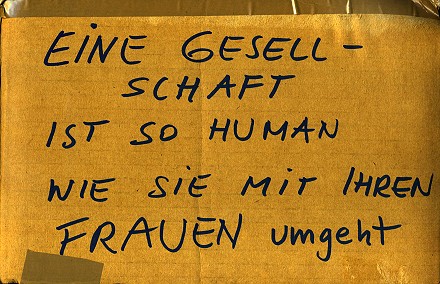 EINE GESELL-
SCHAFT
IST SO HUMAN
WIE SIE MIT IHREN
FRAUEN umgeht